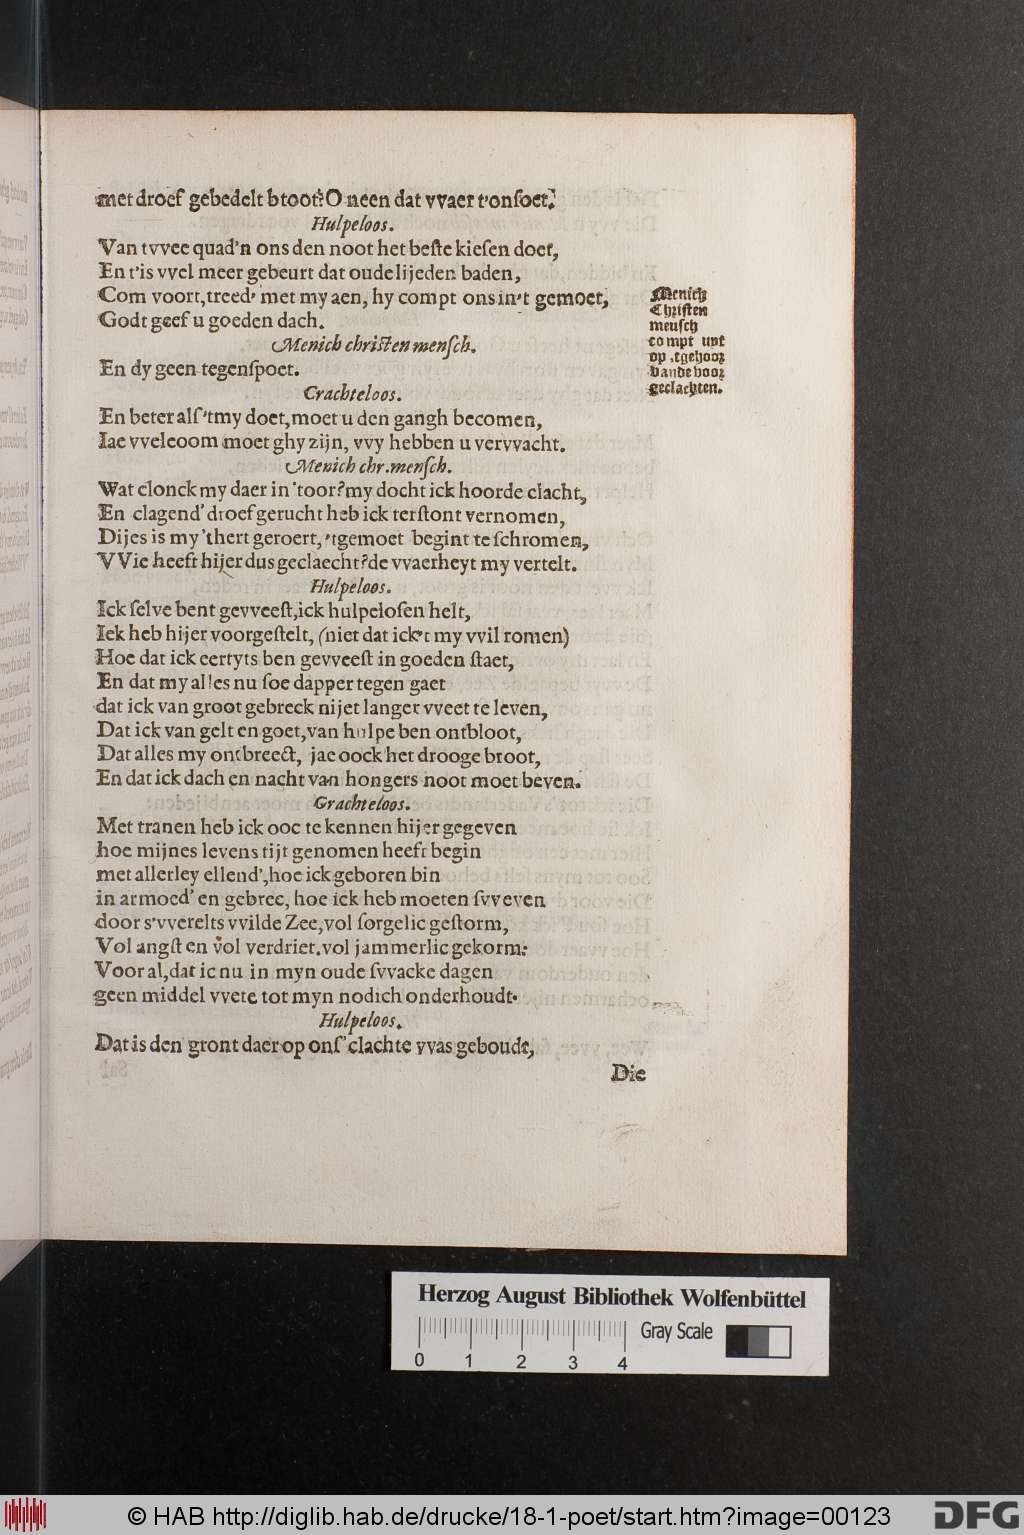 met droef gebedelt btoot? O neen dat vvaer t'onſoet.
Hulpeloos.
Van tvvee quad'n ons den noot het beſte kieſen doet,
En t'is vvel meer gebeurt dat oude lijeden baden,
Com voort, treed' met my aen, hy compt ons in't gemoet,
Godt geef u goeden dach.
Menich chriſten menſch.
En dy geen tegenſpoet.
Crachteloos.
En beter alſ'tmy doet, moet u den gangh becomen,
Iae vvelcoom moet ghy zijn, vvy hebben u vervvacht.
Menich chr. menſch.
Wat clonck my daer in 'toor? my docht ick hoorde clacht,
En clagend' droef gerucht heb ick terſtont vernomen,
Dijes is my 'thert geroert, 'tgemoet begint te ſchromen,
VVie heeft hijer dus geclaecht? de vvaerheyt my vertelt.
Hulpeloos.
Ick ſelve bent gevveeſt, ick hulpeloſen helt,
Iek heb hijer voorgeſtelt, (niet dat ick't my vvil romen)
Hoe dat ick eertyts ben gevveeſt in goeden ſtaet,
En dat my alles nu ſoe dapper tegen gaet
dat ick van groot gebreck nijet langer vveet te leven,
Dat ick van gelt en goet, van hulpe ben ontbloot,
Dat alles my ontbreect, jae oock het drooge broot,
En dat ick dach en nacht van hongers noot moet beven.
Grachteloos.
Met tranen heb ick ooc te kennen hijer gegeven
hoe mijnes levens tijt genomen heeft begin
met allerley ellend', hoe ick geboren bin
in armoed' en gebrec, hoe ick heb moeten ſvveven
door s'vverelts vvilde Zee, vol ſorgelic geſtorm,
Vol angſt en vol verdriet. vol jammerlic gekorm:
Voor al, dat ic nu in myn oude ſvvacke dagen
geen middel vvete tot myn nodich onderhoudt.
Hulpeloos.
Dat is den gront daer op onſ' clachte vvas geboudt,
Die
Menich
Chriſten
meuſch
compt uyt
op 'tgehoor
vande voor
geclachten.
Herzog August Bibliothek Wolfenbüttel
0 1 2 3 4
Gray Scale
© HAB http://diglib.hab.de/drucke/18-1-poet/start.htm?image=00123
DFG